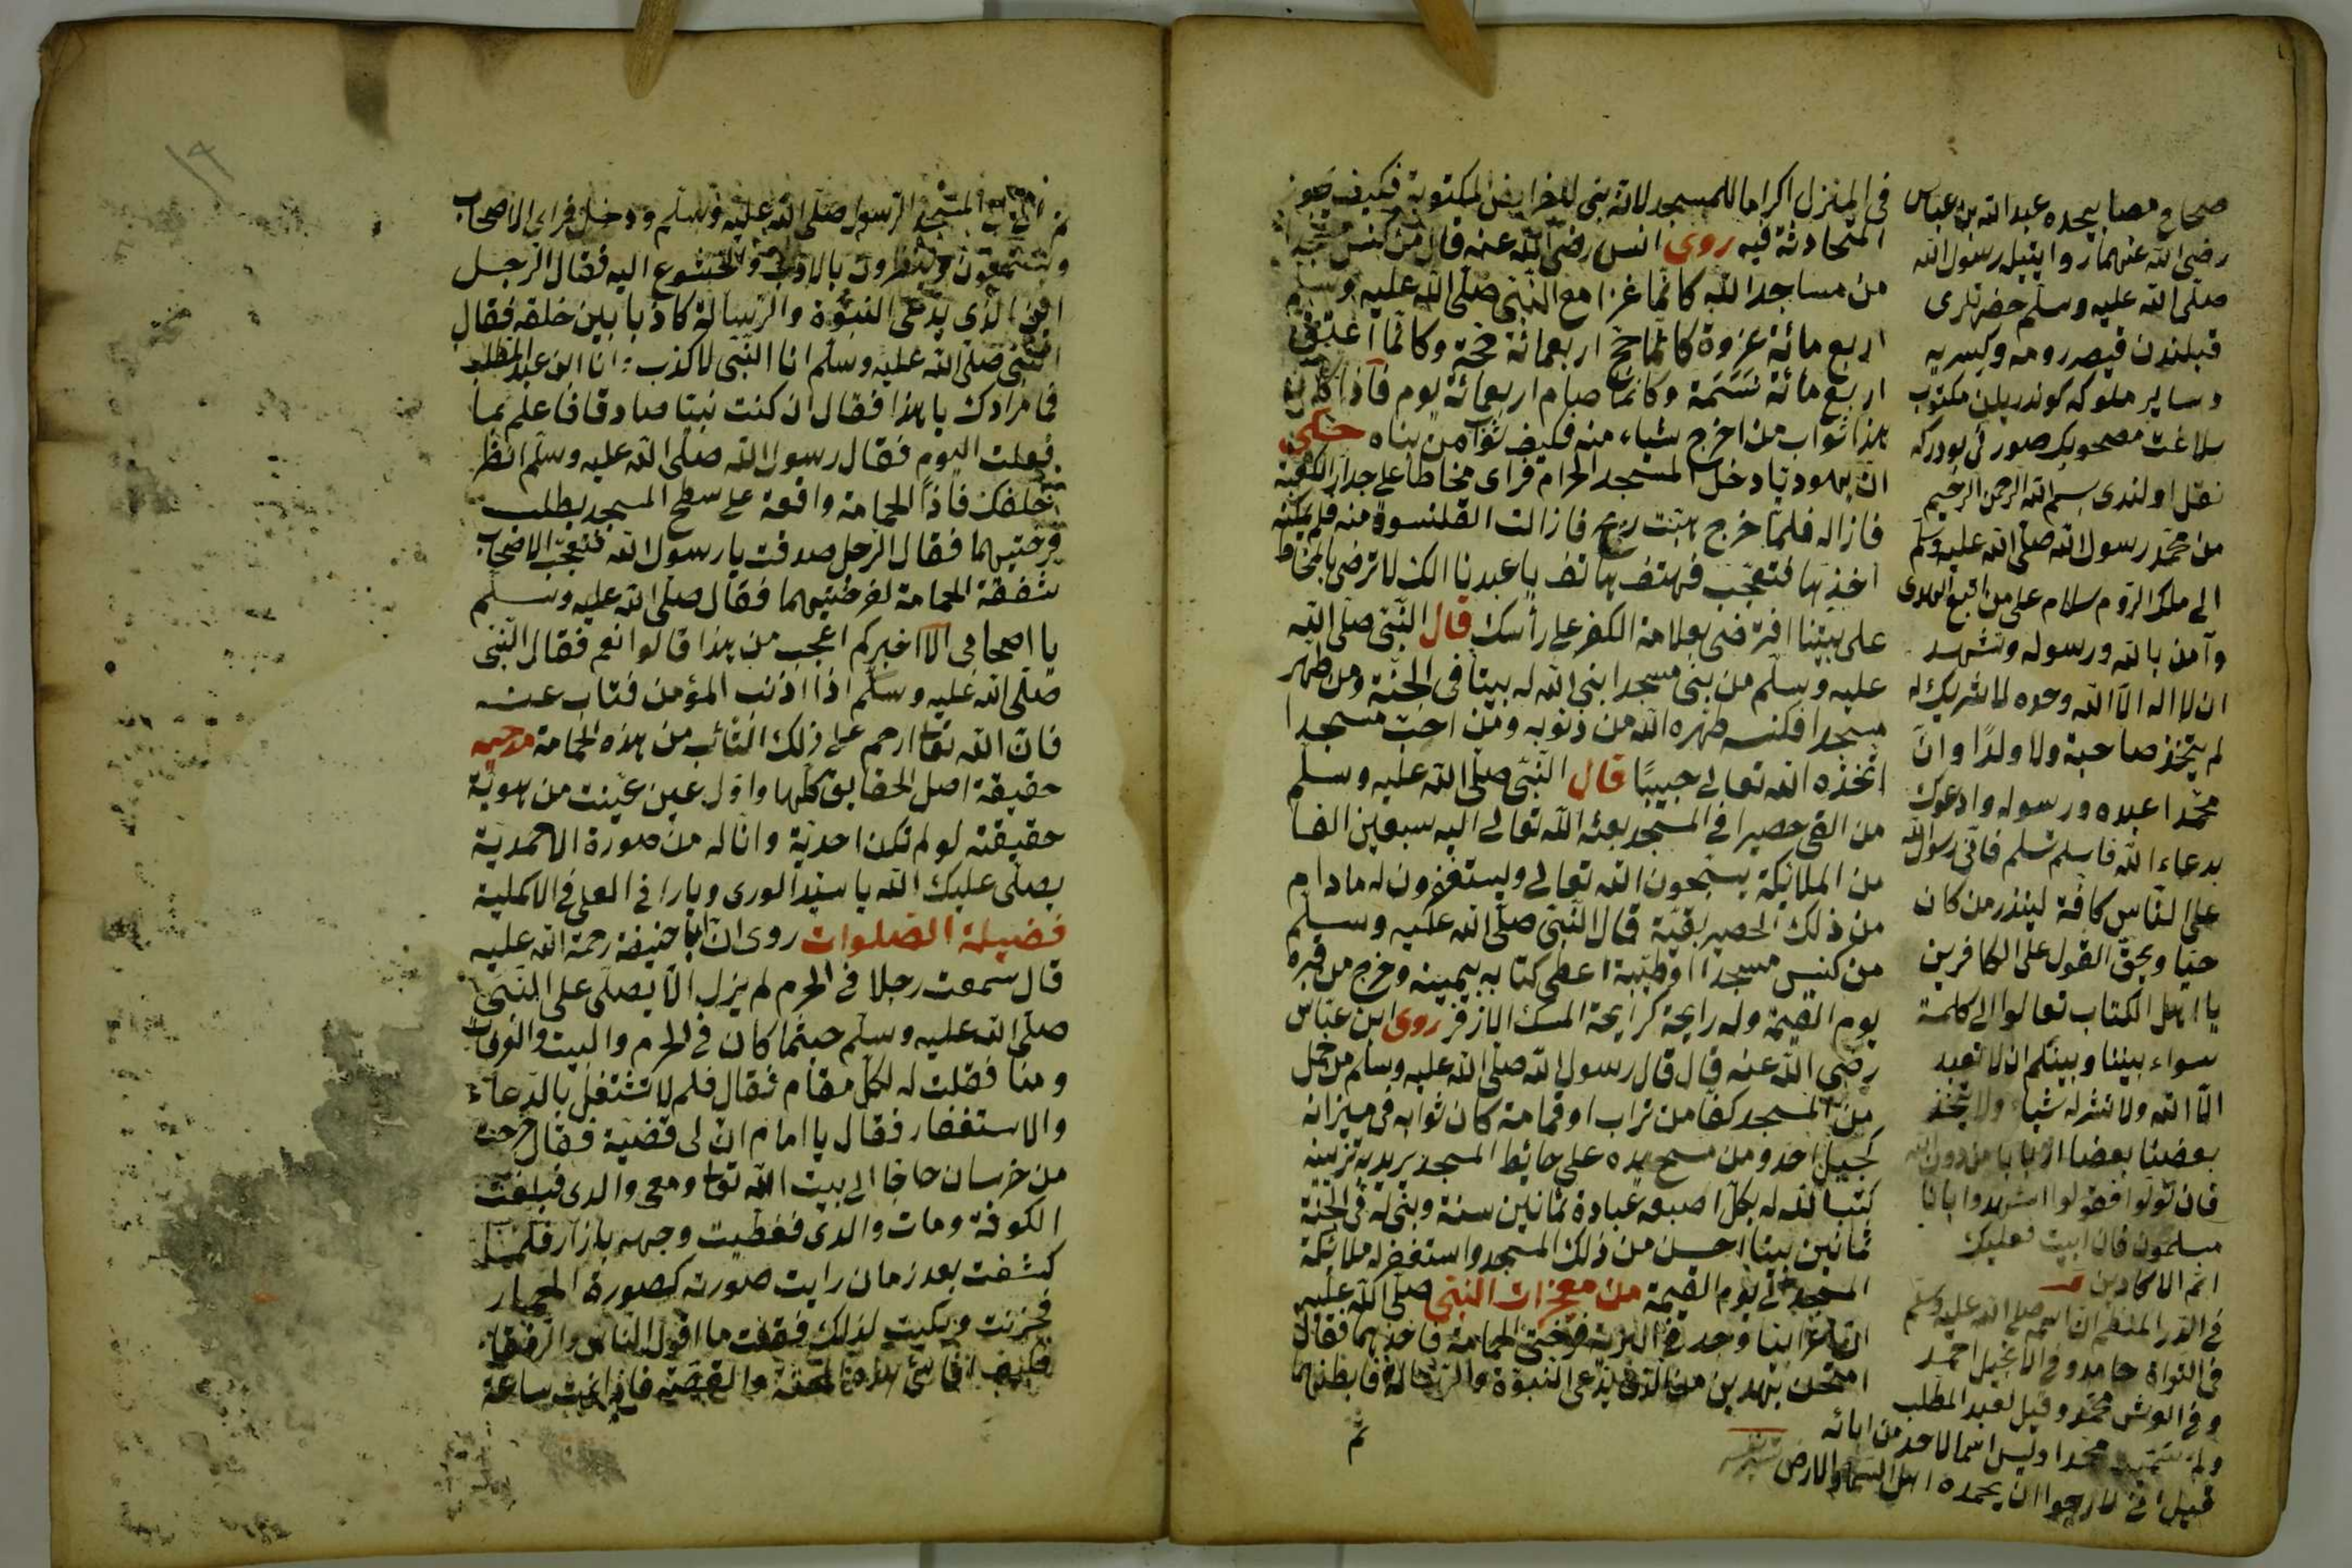 فى المنزل اكراما للمسجد لانه بنى للفرايض المكتوبة فكيف يجوز
المحادثة فيه روى انس رضى الله عنه قال من كنس مسجدا
من مساجد الله كانما غزا مع النبى صلى الله عليه وسلم
اربع مائة غزوة كانما حج اربعمائة حجة وكانما اعتق
اربع مائة نسمة وكانما صام اربعمائة يوم فاذا كان
هذا ثواب من اخرج شياء منه فكيف ثواب من بناه حكى
ان يهوديا دخل المسجد الحرام فراى مخاطا على جدار الكعبة
فازاله فلما خرج هبت ريح فازالت القلنسوة منه فلم يمكنه
اخذها فتعجب فهتف هاتف يا عبدنا انك لا ترضى بالمخاط
على بيتنا افترضى بعلامة الكفر على رأسك قال النبى صلى الله
عليه وسلم من بنى مسجدا بنى الله له بيتا فى الجنة ومن طهر
مسجدا فكنسه طهره الله من ذنوبه ومن احب مسجدا
اتخذه الله تعالى حبيبا قال النبى صلى الله عليه وسلم
من القى حصيرا فى المسجد بعث الله تعالى اليه سبعين الفا
من الملائكة يسبحون الله تعالى ويستغفرون له مادام
من ذلك الحصير بقية قال النبى صلى الله عليه وسلم
من كنس مسجدا او طيبه اعطى كتابه بيمينه وخرج من قبره
يوم القيمة وله رايحة كرايحة المسك الازفر روى ابن عباس
رضى الله عنه قال قال رسول الله صلى الله عليه وسلم من حمل
من المسجد كفا من تراب او قمامة كان ثوابه فى ميزانه
كجبل احد ومن مسح يده على حائط المسجد يريد به تزيينه
كتب الله له بكل اصبعه عبادة ثمانين سنة وبنى له فى الجنة
ثمانين بيتا احسن من ذلك المسجد واستغفر له ملائكة
المسجد الى يوم القيمة من معجزات النبى صلى الله عليه
ان اعرابيا وجد فى البرية فرختى الحمامة فاخذهما فقال
امتحن بهذين من الذى يدعى النبوة والرسالة فابطنهما
ثم
صحاح مصابيحده عبد الله بن عباس
رضى الله عنهما روايتيله رسول الله
صلى الله عليه وسلم حضرتلرى
قبلندن قيصر رومه وكسريه
وساير ملوكه كوندريلن مكتوب
بلاغت مصحوبك صورتى بودركه
نقل اولندى بسم الله الرحمن الرحيم
من محمد رسول الله صلى الله عليه وسلم
الى ملك الروم سلام على من اتبع الهدى
وآمن بالله ورسوله وتشهد
ان لا اله الا الله وحده لا شريك له
لم يتخذ صاحبة ولا ولدا وان
محمدا عبده ورسوله وادعوك
بدعاء الله فاسلم تسلم فانى رسول الله
على الناس كافة لينذر من كان
حيا ويحق القول على الكافرين
يا اهل الكتاب تعالوا الى كلمة
سواء بيننا وبينكم ان لا نعبد
الا الله ولا نشرك شياء ولا يتخذ
بعضنا بعضا اربابا من دون الله
فان تولوا فقولوا اشهدوا بانا
مسلمون فان ابيت فعليك
اثم الاكادين
فى الدر المنظم ان اسمه صلى الله عليه وسلم
فى التوراة حامد وفى الانجيل احمد
وفى العرش محمد وقيل لعبد المطلب
ولم سميته محمدا وليس اسما لاحد من ابائه
قيل انى لارجوا ان يحمده اهل السماء والارض
ثم المسجد الرسول صلى الله عليه وسلم ودخل فراى الاصحاب
وينظرون بالادب والخشوع اليه فقال الرجل
اين الذى يدعى النبوة والرسالة كاذبا بين خلقه فقال
النبى صلى الله عليه وسلم انا النبى لا كذب انا ابن عبد المطلب
فما مرادك يا هذا فقال ان كنت نبيا صادقا فاعلم بما
فعلت اليوم فقال رسول الله صلى الله عليه وسلم انظر
خلفك فاذا الحمامة واقعة على سطح المسجد يطلب
فرختيهما فقال الرجل صدقت يا رسول الله فتعجب الاصحاب
شفقة الحمامة لفرختيهما فقال صلى الله عليه وسلم
يا اصحابى الا اخبركم اعجب من هذا قالوا نعم فقال النبى
صلى الله عليه وسلم اذا اذنب المؤمن فتاب عنه
فان الله تعالى ارحم على ذلك التائب من هذه الحمامة مدحيه
حقيقة اصل الحقايق كلها واول عين عينت من هوية
حقيقته لو لم تكن احدية وانا له من صورة الاحمدية
يصلى عليك الله يا سيد الورى ويا را فى العلى فى الاكملية
فضيلة الصلوات روى ان ابا حنيفة رحمة الله عليه
قال سمعت رجلا فى الحرم لم يزل الا يصلى على النبى
صلى الله عليه وسلم حيثما كان فى الحرم والبيت والعرفات
ومنا فقلت له لكل مقام مقال فلم لا تشتغل بالدعاء
والاستغفار فقال يا امام ان لى قضية فقال خرجت
من خرسان حاجا الى بيت الله تعالى ومعى والدى فبلغت
الكوفة ومات والدى فغطيت وجهه بازار فلما
كشفت بعد زمان رايت صورته كصورة الحمار
فحزنت وبكيت لذلك فقلت ما اقول الناس والرفقاء
فكيف هذه المحنة والقصة فاذا نمت ساعة